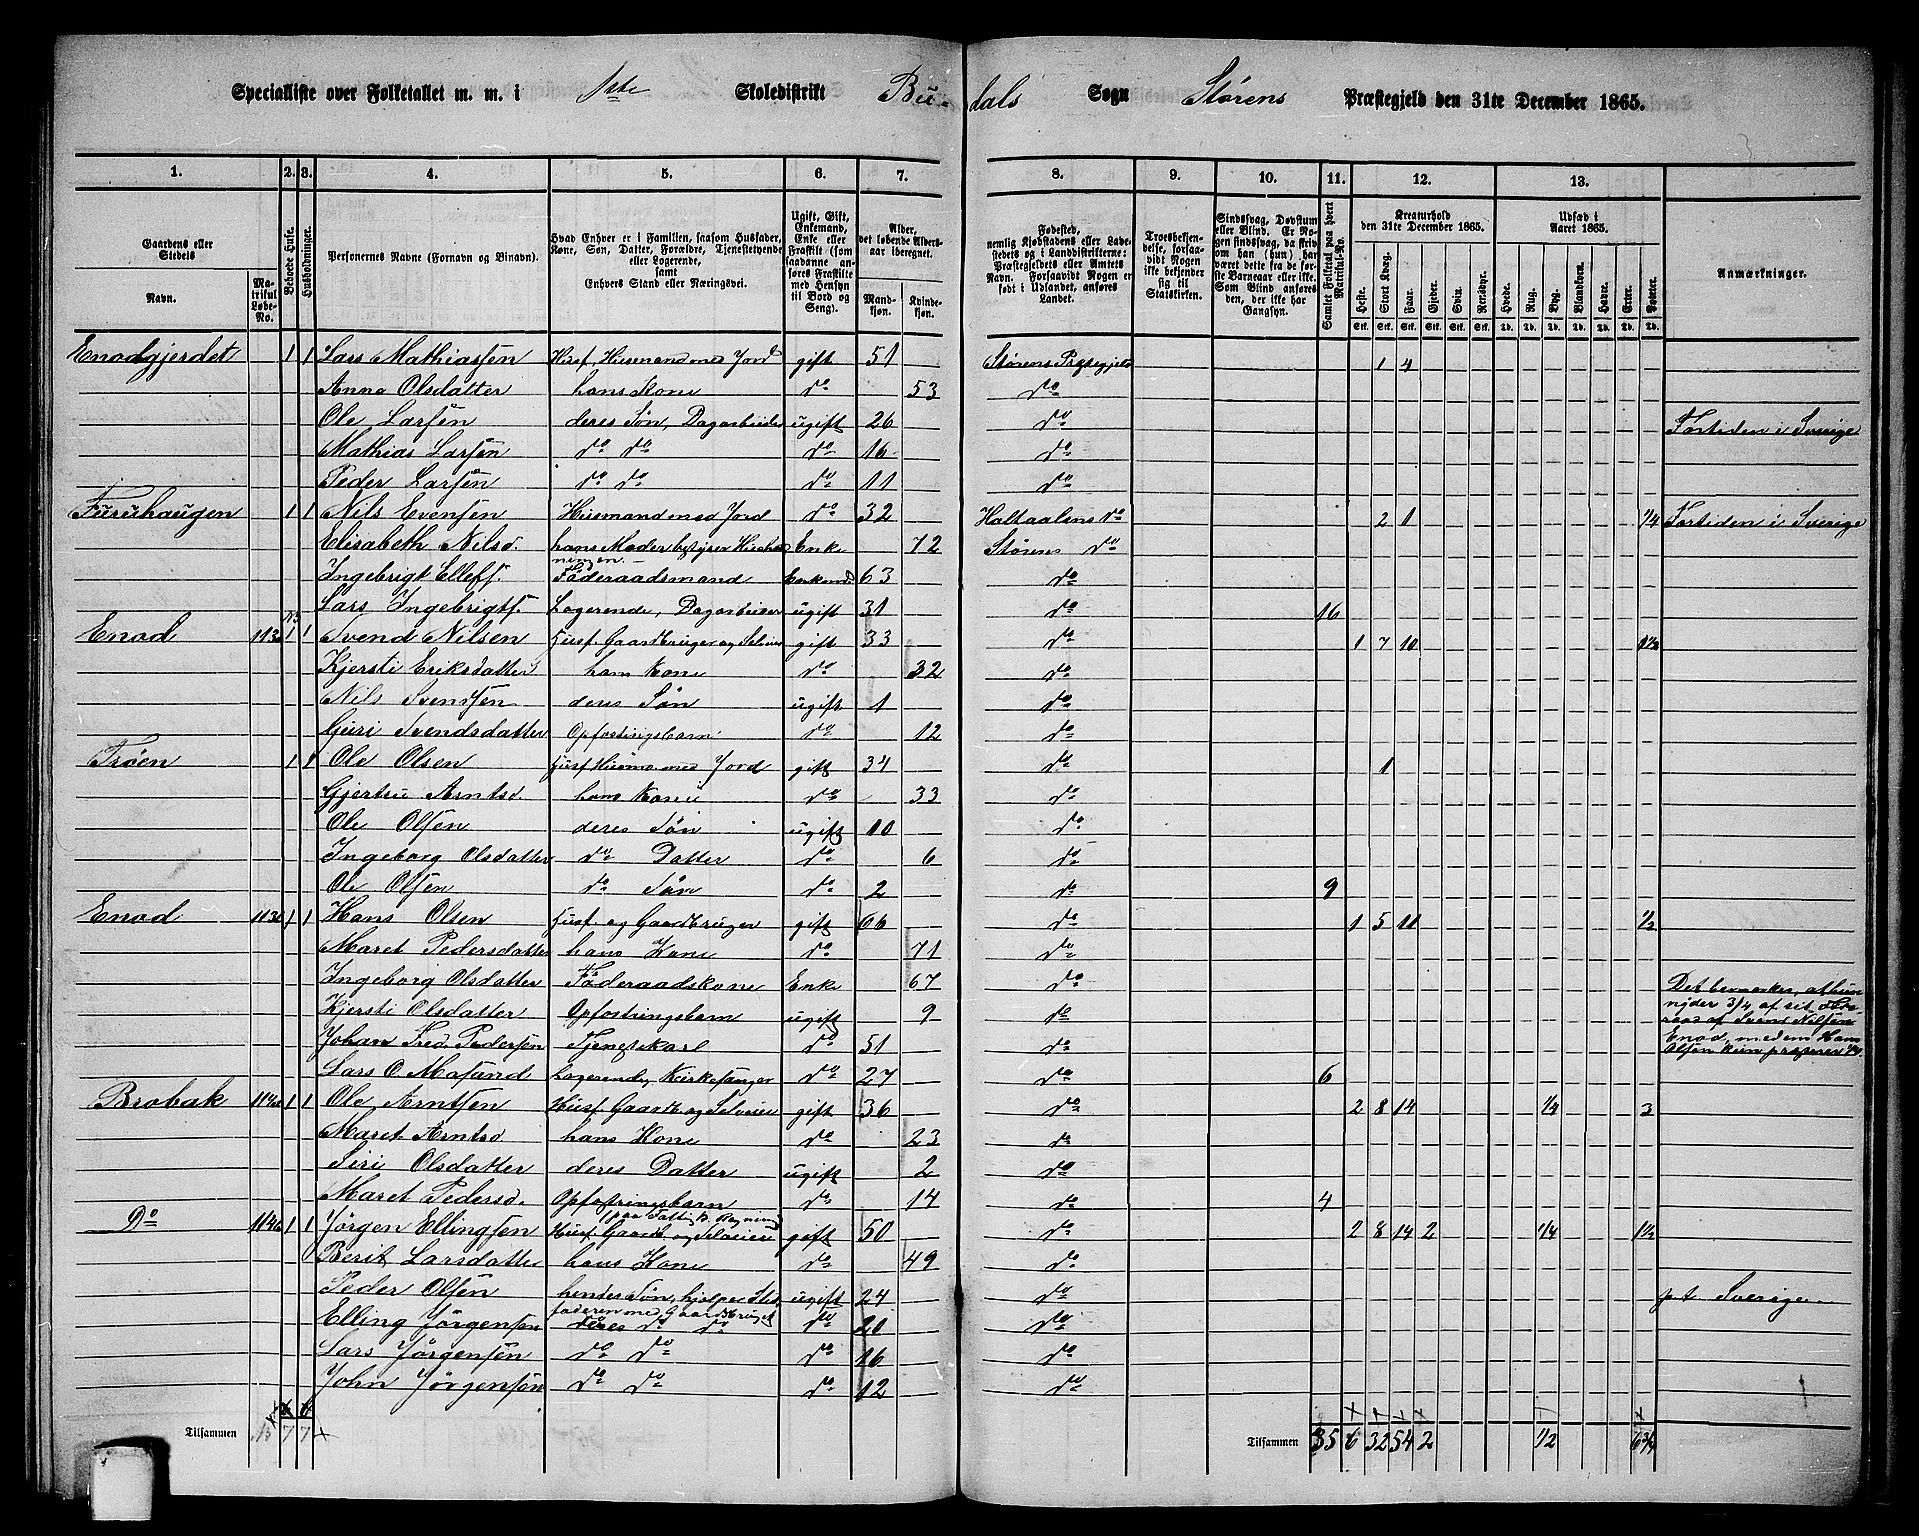 Specialliste over Folketallet m. m. i 1ste Skoledistrikt Bu-dals Sogn Størens Præstegjeld den 31te December 1865.
1. 2. 3. 4. 5. 6. 7. 8. 9. 10. 11. 12. 13.
Gaardens eller Stedets Navn. Matrikul Løbe-No. Beboede Huse. Husholdninger. Personernes Navne (Fornavn og Binavn). Hvad Enhver er i Familien, saasom Husfader, Kone, Søn, Datter, Forældre, Tjenestetyende eller Logerende, samt Enhvers Stand eller Næringsvei. Ugift, Gift, Enkemand, Enke eller Fraskilt (som saadanne anføres Fraskilte med Hensyn til Bord og Seng). Alder, det løbende Alders-aar iberegnet. Mandkjøn. Kvindekjøn.
Fødested, nemlig Kjøbstadens eller Ladestedets og i Landdistrikterne: Præstegjeldets eller Amtets Navn. Forsaavidt Nogen er født i Udlandet, anføres Landet. Troesbekjendelse, forsaavidt Nogen ikke bekjender sig til Statskirken. Sindssvag, Døvstum eller Blind. Er Nogen sindssvag, da skrives om han (hun) har været dette fra de første Barneaar eller ikke. Som Blind anføres den, der ikke har Gangsyn. Samlet Folketal paa hvert Matrikul-No. Kreaturhold den 31te December 1865. Heste. Stort Kvæg. Faar. Gjeder. Svin. Rensdyr. Udsæd i Aaret 1865. Hvede. Rug. Byg. Blandkorn. Havre. Erter. Poteter. Anmærkninger.
Enodgjerdet 1 1 Lars Mathiassen Husf. Husmand med Jord gift 51 Størens Præstegjeld 1 4
Anne Olsdatter hans Kone do 53 do
Ole Larsen deres Søn, Dagarbeider ugift 26 do Fortiden i Sverige
Mathias Larsen do do do 16 do
Peder Larsen do do do 11 do
Furuhaugen 1 1 Nils Evensen Husmand med Jord do 32 Holtaalens do 2 1 1/4 Fortiden i Sverige
Elisabeth Nilsd. hans Moder Enke 72 Størens do
Ingebrigt Ellefs. Føderaadsmand Enkemd 63 do
Lars Ingebrigts. Logerende, Dagarbeider ugift 31 do 16
Enod 113 1 1 Svend Nilsen Husf. Gaardbruger og Selveier gift 33 do 1 7 10 1 1/2
Kjersti Eriksdatter hans Kone do 32 do
Nils Svendsen deres Søn ugift 1 do
Guri Svendsdatter Opfostringsbarn do 12 do
Trøen 1 1 Ole Olsen Husf. Husma. med Jord gift 34 do 1
Gjertru Arntsd. hans Kone do 33 do
Ole Olsen deres Søn ugift 10 do
Ingeborg Olsdatter do Datter do 6 do
Ole Olsen do Søn do 2 do 9
Enod 113 1 1 Hans Olsen Husf. og Gaardbruger gift 66 do 1 5 11 1/2
Maret Pedersdatter hans Kone do 71 do
Ingeborg Olsdatter Føderaadskone Enke 67 do Det bemærkes, at hun
Kjersti Olsdatter Opfostringsbarn ugift 9 do nyder 3/4 af sit Føde-
raad af Svend Nilsen
Johan Fred. Pedersen Tjenestekarl do 51 do Enod, medens Hans
Olsen kun præsterer 1/4.
Lars O. Mosand Logerende, Kirkesanger do 27 do 6
Brobak 114a 1 1 Ole Arntsen Husf. Gaardb. og Selveier gift 36 do 2 8 14 1/4 3
Maret Arntsd hans Kone do 23 do
Siri Olsdatter deres Datter ugift 2 do
Maret Pedersd. Opfostringsbarn do 14 do 4
do 114b 1 1 Jørgen Ellingsen Husf. Gaardb. og Selveier gift 50 do 2 8 14 2 1/4 1 1/2
Berit Larsdatter hans Kone do 49 do
Peder Olsen hendes Søn, hjelper Sted- ugift 24 do p.t. Sverige
faderen med Gaardbruget
Elling Jørgensen deres do do do 20 do
Lars Jørgensen do do do 16 do
John Jørgensen do do do 12 do
Tilsammen 7 7 Tilsammen 35 6 32 54 2 1/2 6 3/4